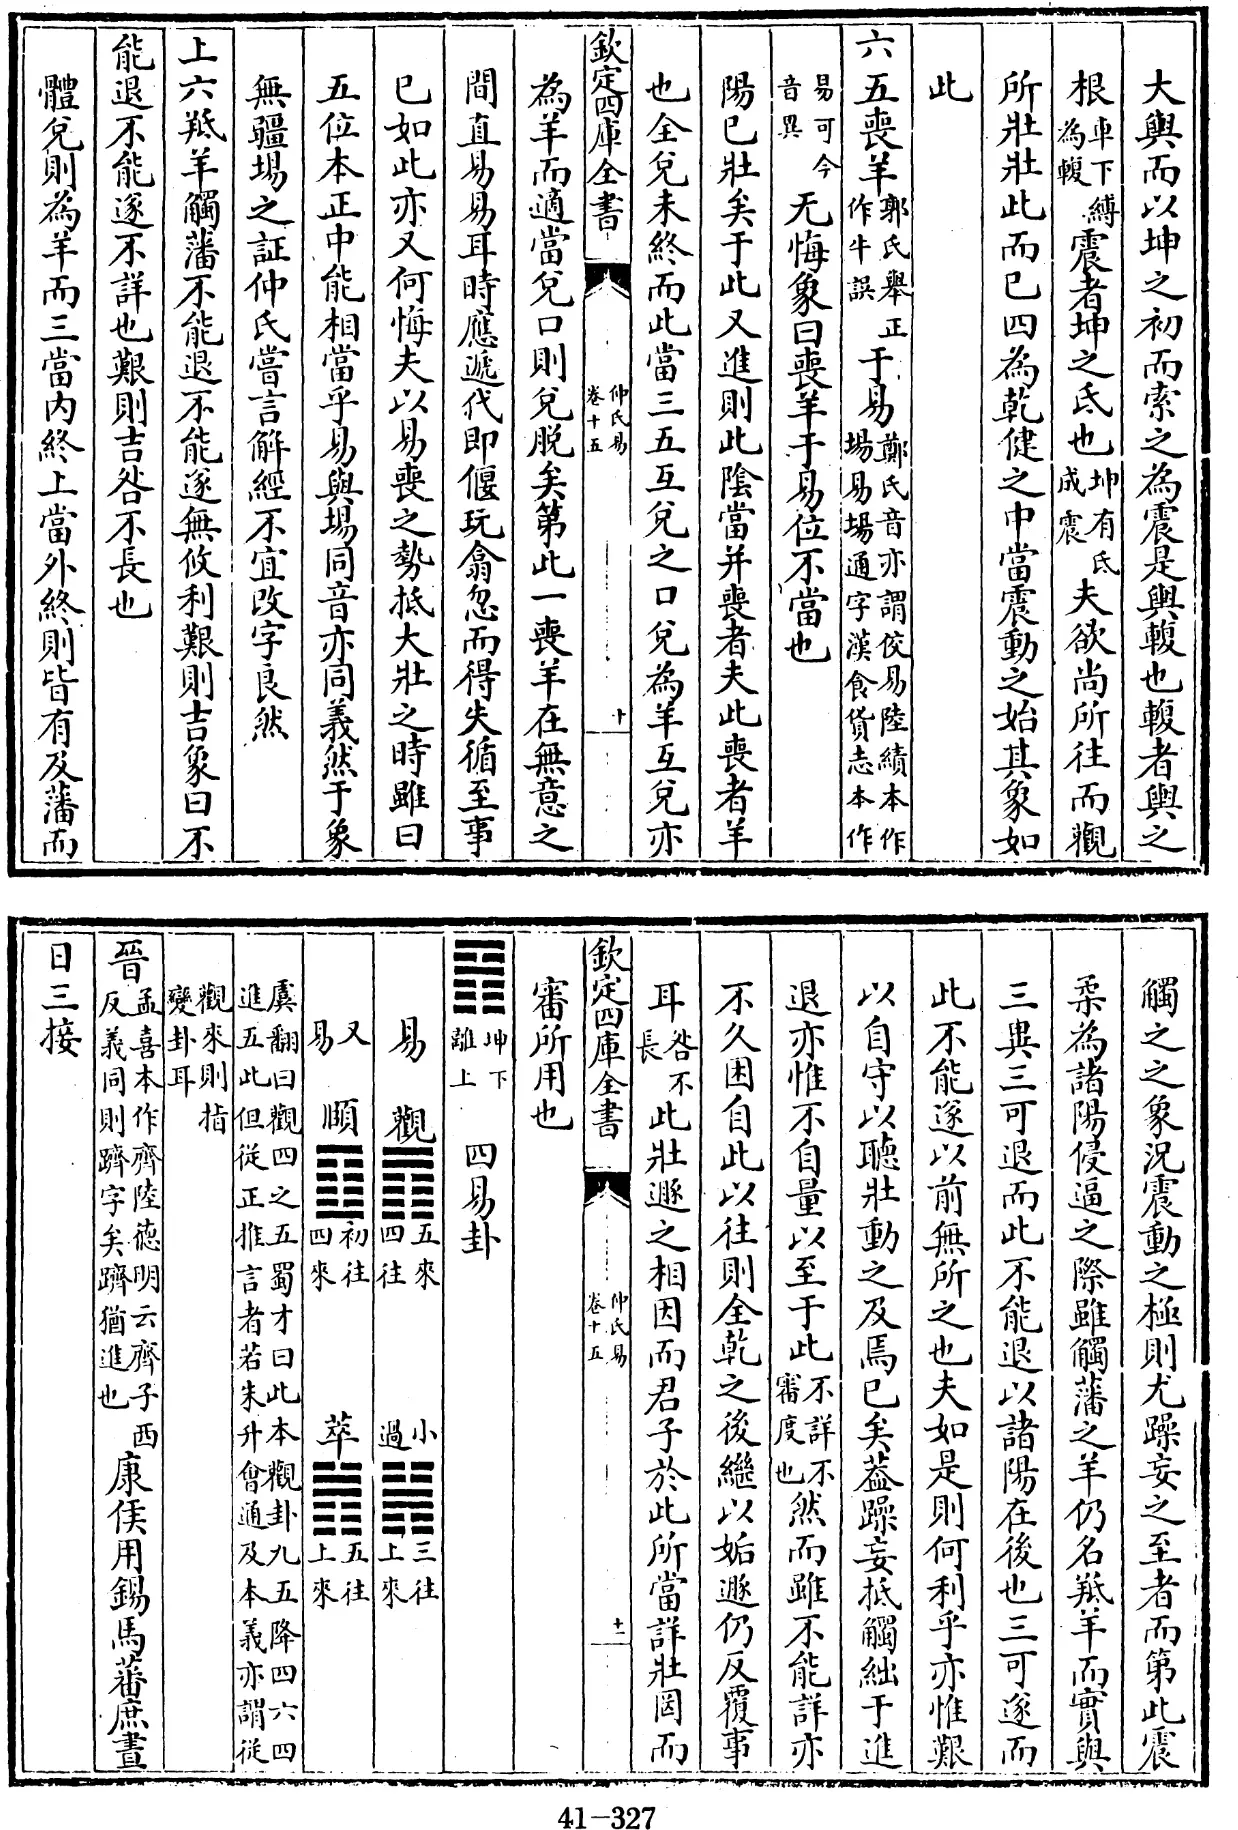 大輿而以坤之初而索之為震是輿輹也輹者輿之
根車下縛為輹震者坤之氐也坤有氐成震夫欲尚所往而觀
所壯壯此而已四為乾健之中當震動之始其象如
此
六五喪羊郭氏舉正作牛誤于易鄭氏音亦謂佼易陸績本作場易場通字漢食貨志本作
易可今音異无悔象曰喪羊于易位不當也
陽已壯矣于此又進則此陰當并喪者夫此喪者羊
也全兌未終而此當三五互兌之口兌為羊互兌亦
欽定四庫全書
仲氏易
卷十五
十
為羊而適當兌口則兌脫矣第此一喪羊在無意之
間直易易耳時應遞代即偃玩翕忽而得失循至事
已如此亦又何悔夫以易喪之勢抵大壯之時雖曰
五位本正中能相當乎易與場同音亦同義然于象
無疆場之証仲氏嘗言解經不宜改字良然
上六羝羊觸藩不能退不能遂無攸利艱則吉象曰不
能退不能遂不詳也艱則吉咎不長也
體兌則為羊而三當內終上當外終則皆有及藩而
觸之之象況震動之極則尤躁妄之至者而第此震
柔為諸陽侵逼之際雖觸藩之羊仍名羝羊而實與
三異三可退而此不能退以諸陽在後也三可遂而
此不能遂以前無所之也夫如是則何利乎亦惟艱
以自守以聽壯動之及焉已矣葢躁妄抵觸絀于進
退亦惟不自量以至于此不詳不審度也然而雖不能詳亦
不久困自此以往則全乾之後繼以姤遯仍反覆事
耳咎不長此壯遯之相因而君子於此所當詳壯罔而
欽定四庫全書
仲氏易
卷十五
十一
審所用也
䷢坤下離上 四易卦
易 觀䷓五來四往 小過䷽三往上來
又易 頤䷚初往四來 萃䷬五往上來
虞翻曰觀四之五蜀才曰此本觀卦九五降四六四進五此但從正推言者若朱升會通及本義亦謂從
觀來則指變卦耳
晉孟喜本作齊陸德明云齊子西反義同則躋字矣躋猶進也康侯用錫馬蕃庶晝
日三接
41-327